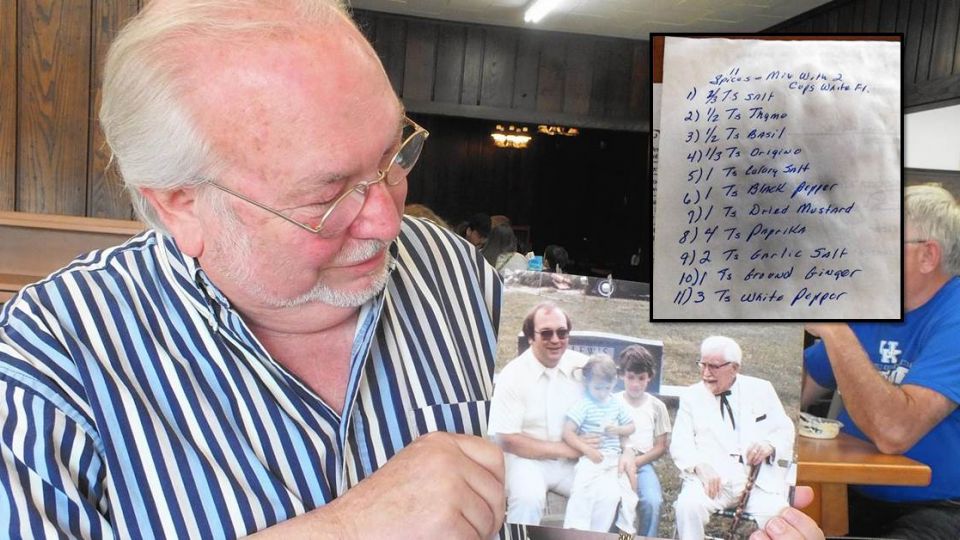 11
Spices – Mix With 2
Cups White Fl.
1) 2/3 Ts Salt
2) 1/2 Ts Thyme
3) 1/2 Ts Basil
4) 1/3 Ts Origino
5) 1 Ts Celary Salt
6) 1 Ts Black Pepper
7) 1 Ts Dried Mustard
8) 4 Ts Paprika
9) 2 Ts Garlic Salt
10) 1 Ts Ground Ginger
11) 3 Ts White Pepper
LEWIS
UK